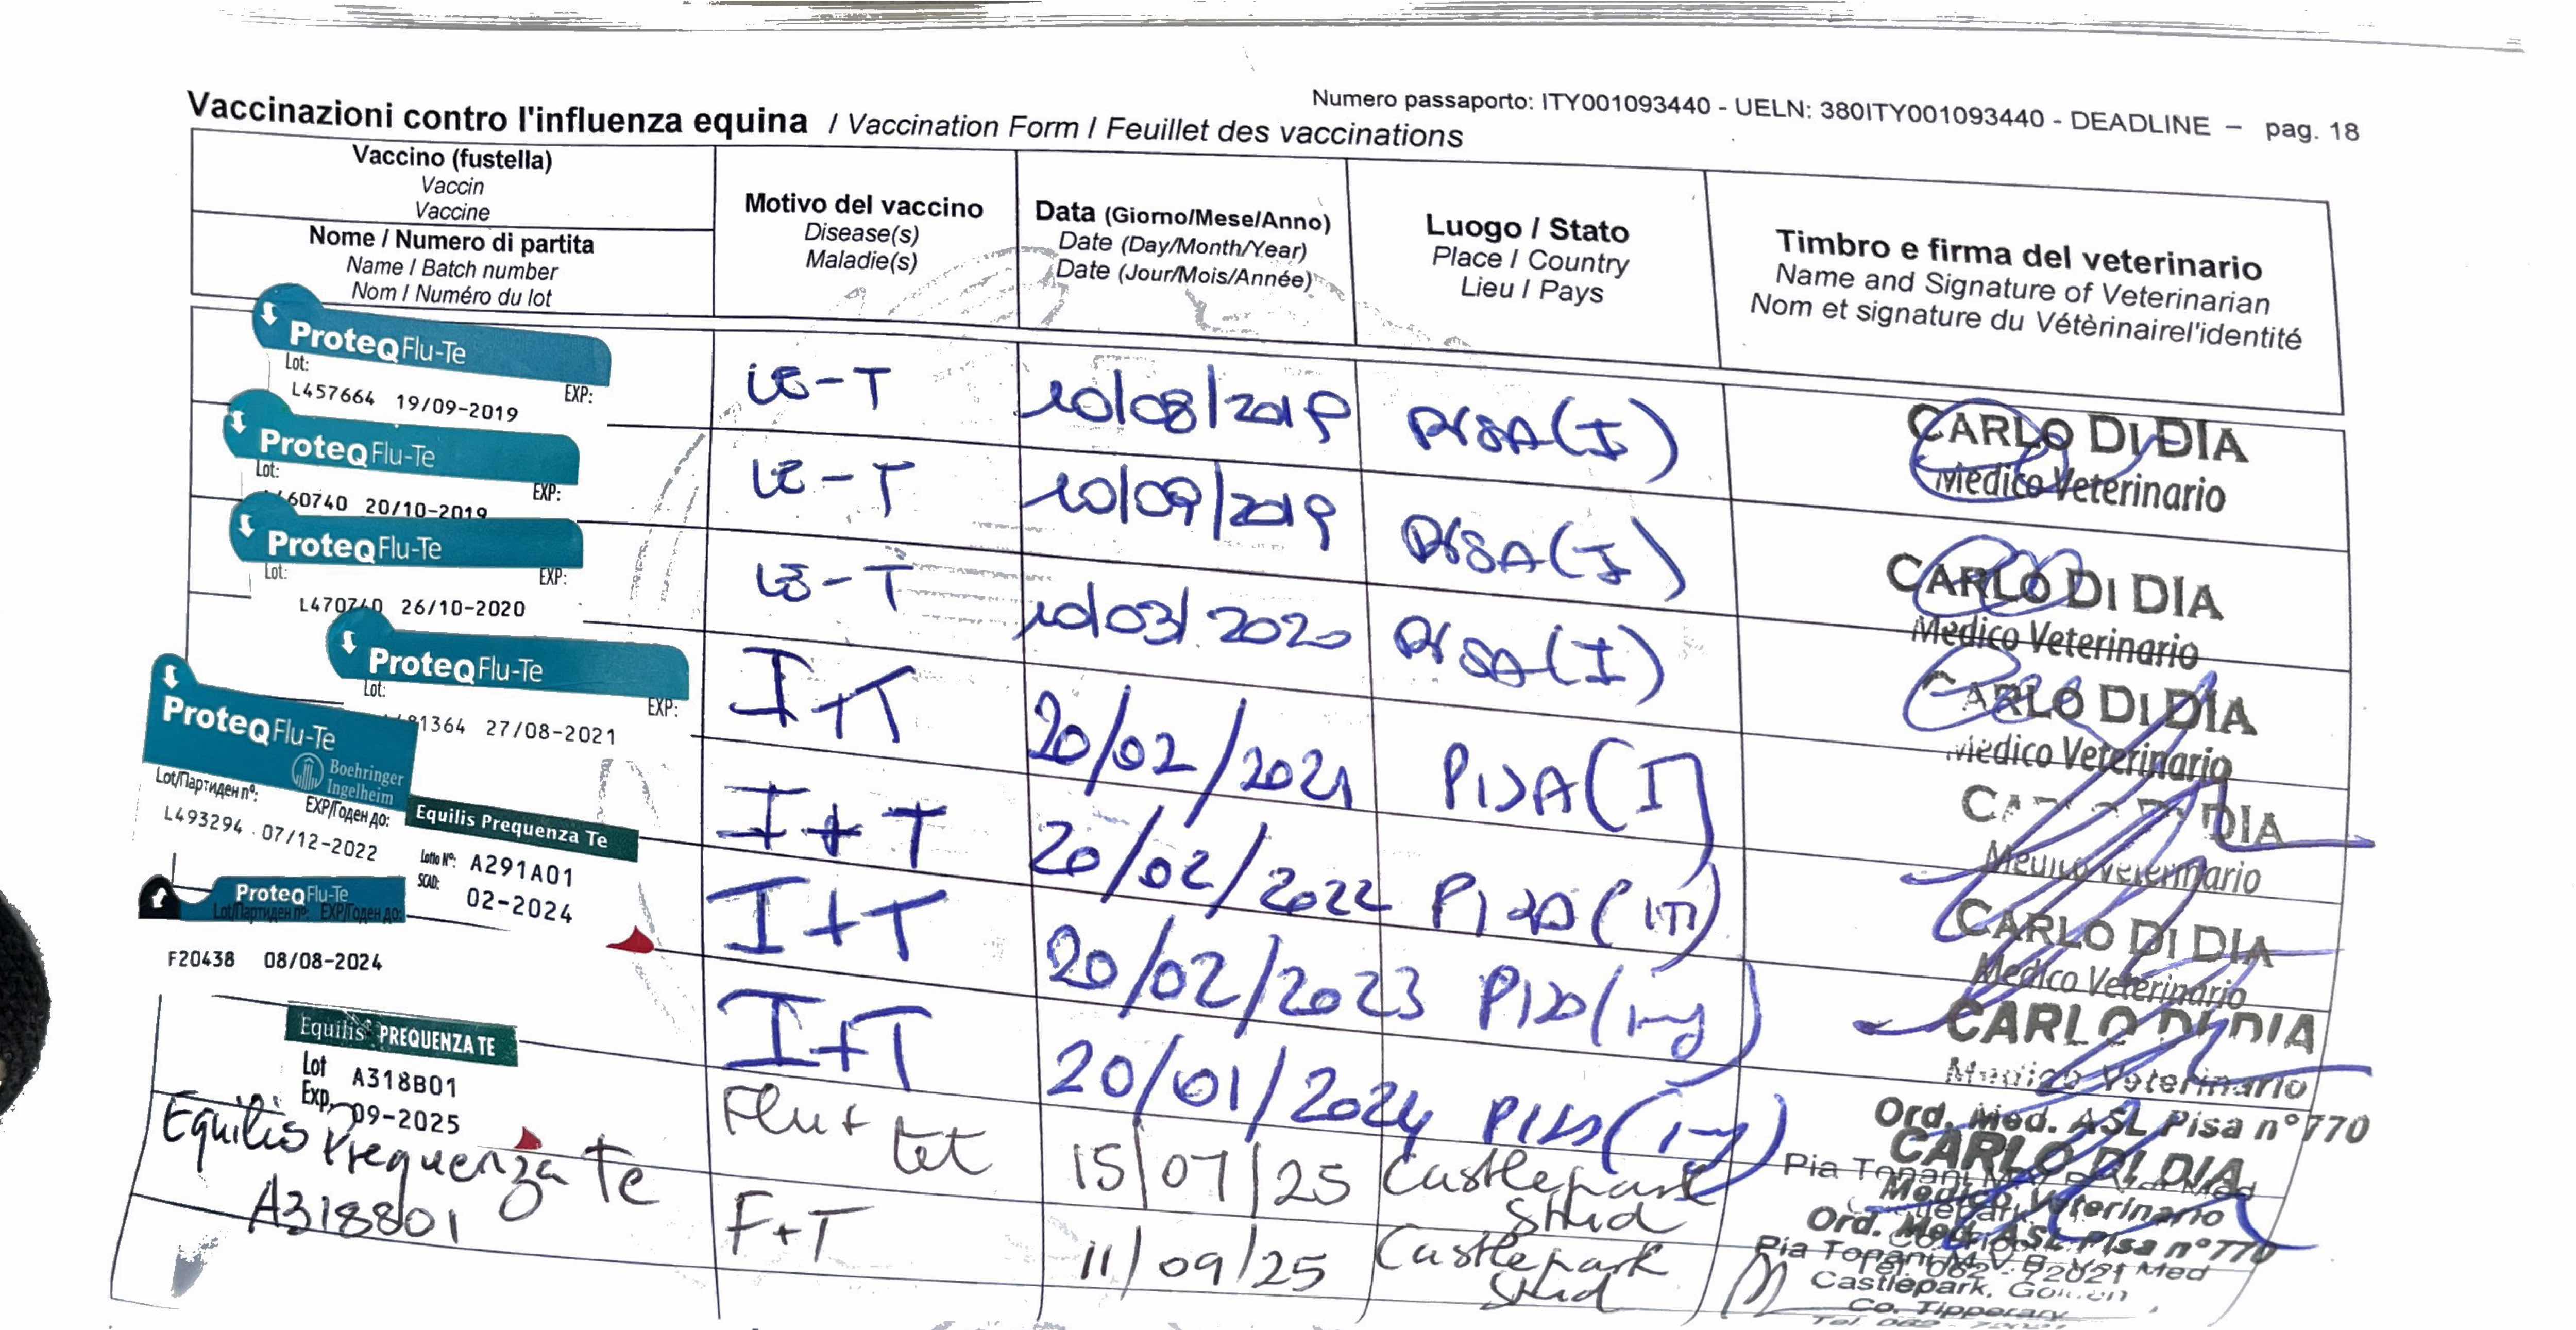 Numero passaporto: ITY001093440 - UELN: 380ITY001093440 - DEADLINE – pag. 18
Vaccinazioni contro l'influenza equina / Vaccination Form / Feuillet des vaccinations
Vaccino (fustella)
Vaccin
Vaccine
Nome / Numero di partita
Name / Batch number
Nom / Numéro du lot
Motivo del vaccino
Disease(s)
Maladie(s)
Data (Giorno/Mese/Anno)
Date (Day/Month/Year)
Date (Jour/Mois/Année)
Luogo / Stato
Place / Country
Lieu / Pays
Timbro e firma del veterinario
Name and Signature of Veterinarian
Nom et signature du Vétèrinairel'identité
ProteqFlu-Te
Lot: EXP:
L457664 19/09-2019
IE-T 10/08/2019 PISA (I)
CARLO DI DIA
Medico Veterinario
ProteqFlu-Te
Lot: EXP:
60740 20/10-2019
IE-T 10/09/2019 PISA (I)
CARLO DI DIA
Medico Veterinario
ProteqFlu-Te
Lot: EXP:
L470740 26/10-2020
IE-T 10/03/2020 PISA (I)
CARLO DI DIA
Medico Veterinario
ProteqFlu-Te
Lot: EXP:
81364 27/08-2021
I+T 20/02/2021 PISA (I)
DIA
Medico Veterinario
ProteqFlu-Te
Boehringer
Ingelheim
Lot/Партиден nº: EXP/Годен до:
L493294 07/12-2022
I+T 20/02/2022 PISA
CARLO DI DIA
Medico Veterinario
Equilis Prequenza Te
Lotto Nº: A291A01
SCAD: 02-2024
I+T 20/02/2023 PISA
CARLO DI DIA
Medico Veterinario
Ord. Med. ASL Pisa n°770
ProteqFlu-Te
Lot/Партиден nº: EXP/Годен до:
F20438 08/08-2024
I+T 20/01/2024 PISA
CARLO DI DIA
Medico Veterinario
Ord. Med. ASL Pisa n°770
Equilis PREQUENZA TE
Lot A318B01
Exp. 09-2025
Flu + tet 15/07/25 Castlepark Stud
Pia Tonani
Equilis Prequenza Te
A318801
F+T 11/09/25 Castlepark Stud
Pia Tonani M.V.B. Vet Med
Castlepark, Golden
Co. Tipperary